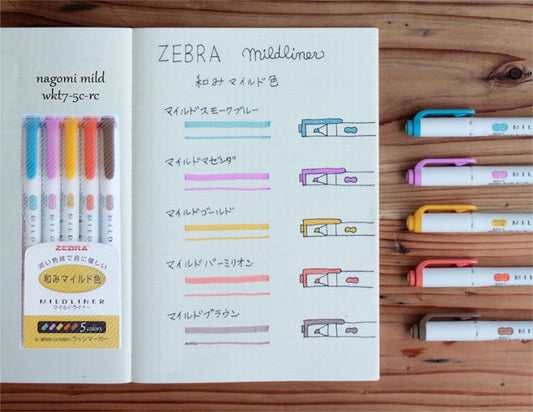 nagomi mild
wkt7-5c-rc
ZEBRA
濃い色味で目に優しい
和みマイルド色
MILDLINER
マイルドライナー
5 colors
ラインマーカー
ZEBRA mildliner
和みマイルド色
マイルドスモークブルー
マイルドマゼンダ
マイルドゴールド
マイルドバーミリオン
マイルドブラウン
MILD
MILD
MILD
MILD
MILD
MILDL
MILDL
MILD
MILD
MILD